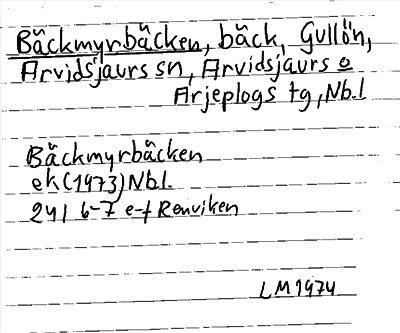 Bäckmyrbäcken, bäck, Gullön,
Arvidsjaurs sn, Arvidsjaurs o
Arjeplogs tg, Nb.l
Bäckmyrbäcken
ek(1973)Nbl.
24I 6-7 e-f Renviken
LM1974